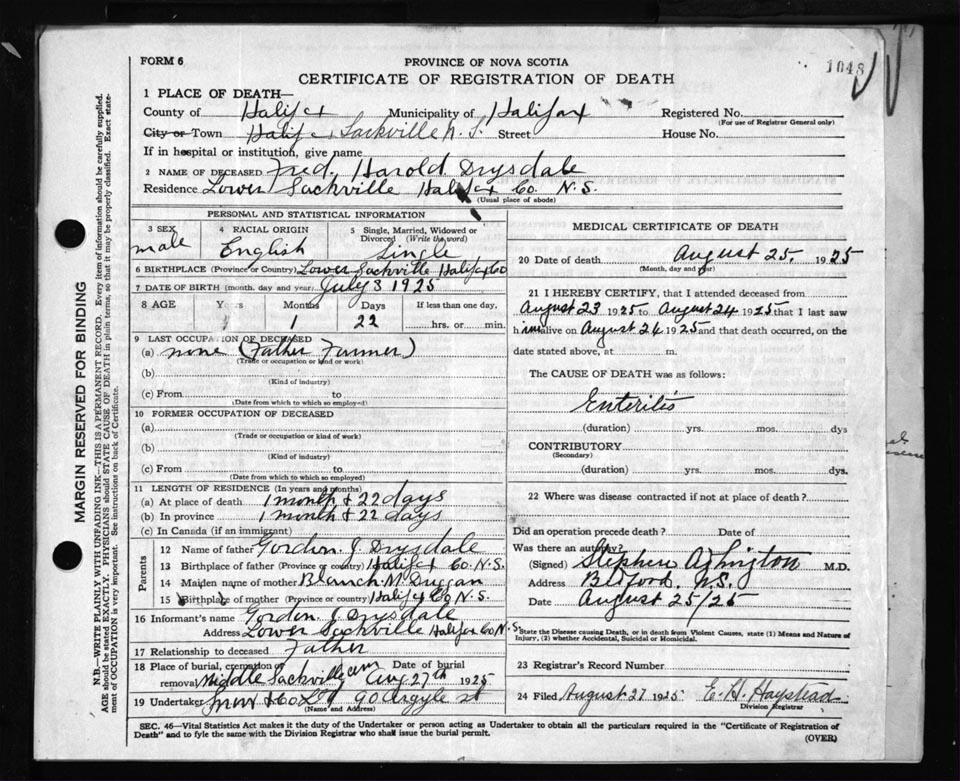 FORM 6
PROVINCE OF NOVA SCOTIA
CERTIFICATE OF REGISTRATION OF DEATH
1048
1 PLACE OF DEATH—
County of Halifax Municipality of Halifax Registered No.
(For use of Registrar General only)
City or Town Halifax Sackville N.S. Street House No.
If in hospital or institution, give name
2 NAME OF DECEASED Fred. Harold Drysdale
Residence Lower Sackville Halifax Co. N.S.
(Usual place of abode)
PERSONAL AND STATISTICAL INFORMATION
3 SEX male
4 RACIAL ORIGIN English
5 Single, Married, Widowed or Divorced (Write the word) Single
6 BIRTHPLACE (Province or Country) Lower Sackville Halifax Co
7 DATE OF BIRTH (month, day and year) July 3 1925
8 AGE Years Months 1 Days 22 If less than one day, hrs. or min.
9 LAST OCCUPATION OF DECEASED
(a) none (Father Farmer)
(Trade or occupation or kind or work)
(b)
(Kind of industry)
(c) From to
(Date from which to which so employed)
10 FORMER OCCUPATION OF DECEASED
(a)
(Trade or occupation or kind of work)
(b)
(Kind of industry)
(c) From to
(Date from which to which so employed)
11 LENGTH OF RESIDENCE (In years and months)
(a) At place of death 1 month & 22 days
(b) In province 1 month & 22 days
(c) In Canada (if an immigrant)
Parents
12 Name of father Gordon J Drysdale
13 Birthplace of father (Province or country) Halifax Co. N.S.
14 Maiden name of mother Blanch M. Duggan
15 Birthplace of mother (Province or country) Halifax Co N.S.
16 Informant's name Gordon J. Drysdale
Address Lower Sackville Halifax Co N.S.
17 Relationship to deceased Father
18 Place of burial, cremation or removal Middle Sackville cem Date of burial Aug 27th 1925
19 Undertaker Snow & Co Ltd 90 Argyle st
(Name and Address)
MEDICAL CERTIFICATE OF DEATH
20 Date of death August 25, 1925
(Month, day and year)
21 I HEREBY CERTIFY, that I attended deceased from
August 23 1925 to August 24 1925 that I last saw
h im alive on August 24 1925 and that death occurred, on the
date stated above, at m.
The CAUSE OF DEATH was as follows:
Enteritis
(duration) yrs. mos. dys
CONTRIBUTORY
(Secondary)
(duration) yrs. mos. dys.
22 Where was disease contracted if not at place of death?
Did an operation precede death? Date of
Was there an autopsy?
(Signed) Stephen M.D.
Address Bedford N.S.
Date August 25/25
State the Disease causing Death, or in death from Violent Causes, state (1) Means and Nature of
Injury, (2) whether Accidental, Suicidal or Homicidal.
23 Registrar's Record Number
24 Filed August 27 1925 E. H. Haystead
Division Registrar
SEC. 46—Vital Statistics Act makes it the duty of the Undertaker or person acting as Undertaker to obtain all the particulars required in the "Certificate of Registration of
Death" and to fyle the same with the Division Registrar who shall issue the burial permit.
(OVER)
MARGIN RESERVED FOR BINDING
N.B.—WRITE PLAINLY WITH UNFADING INK—THIS IS A PERMANENT RECORD. Every item of information should be carefully supplied.
AGE should be stated EXACTLY. PHYSICIANS should STATE CAUSE OF DEATH in plain terms, so that it may be properly classified. Exact statement
of OCCUPATION is very important. See instructions on back of Certificate.